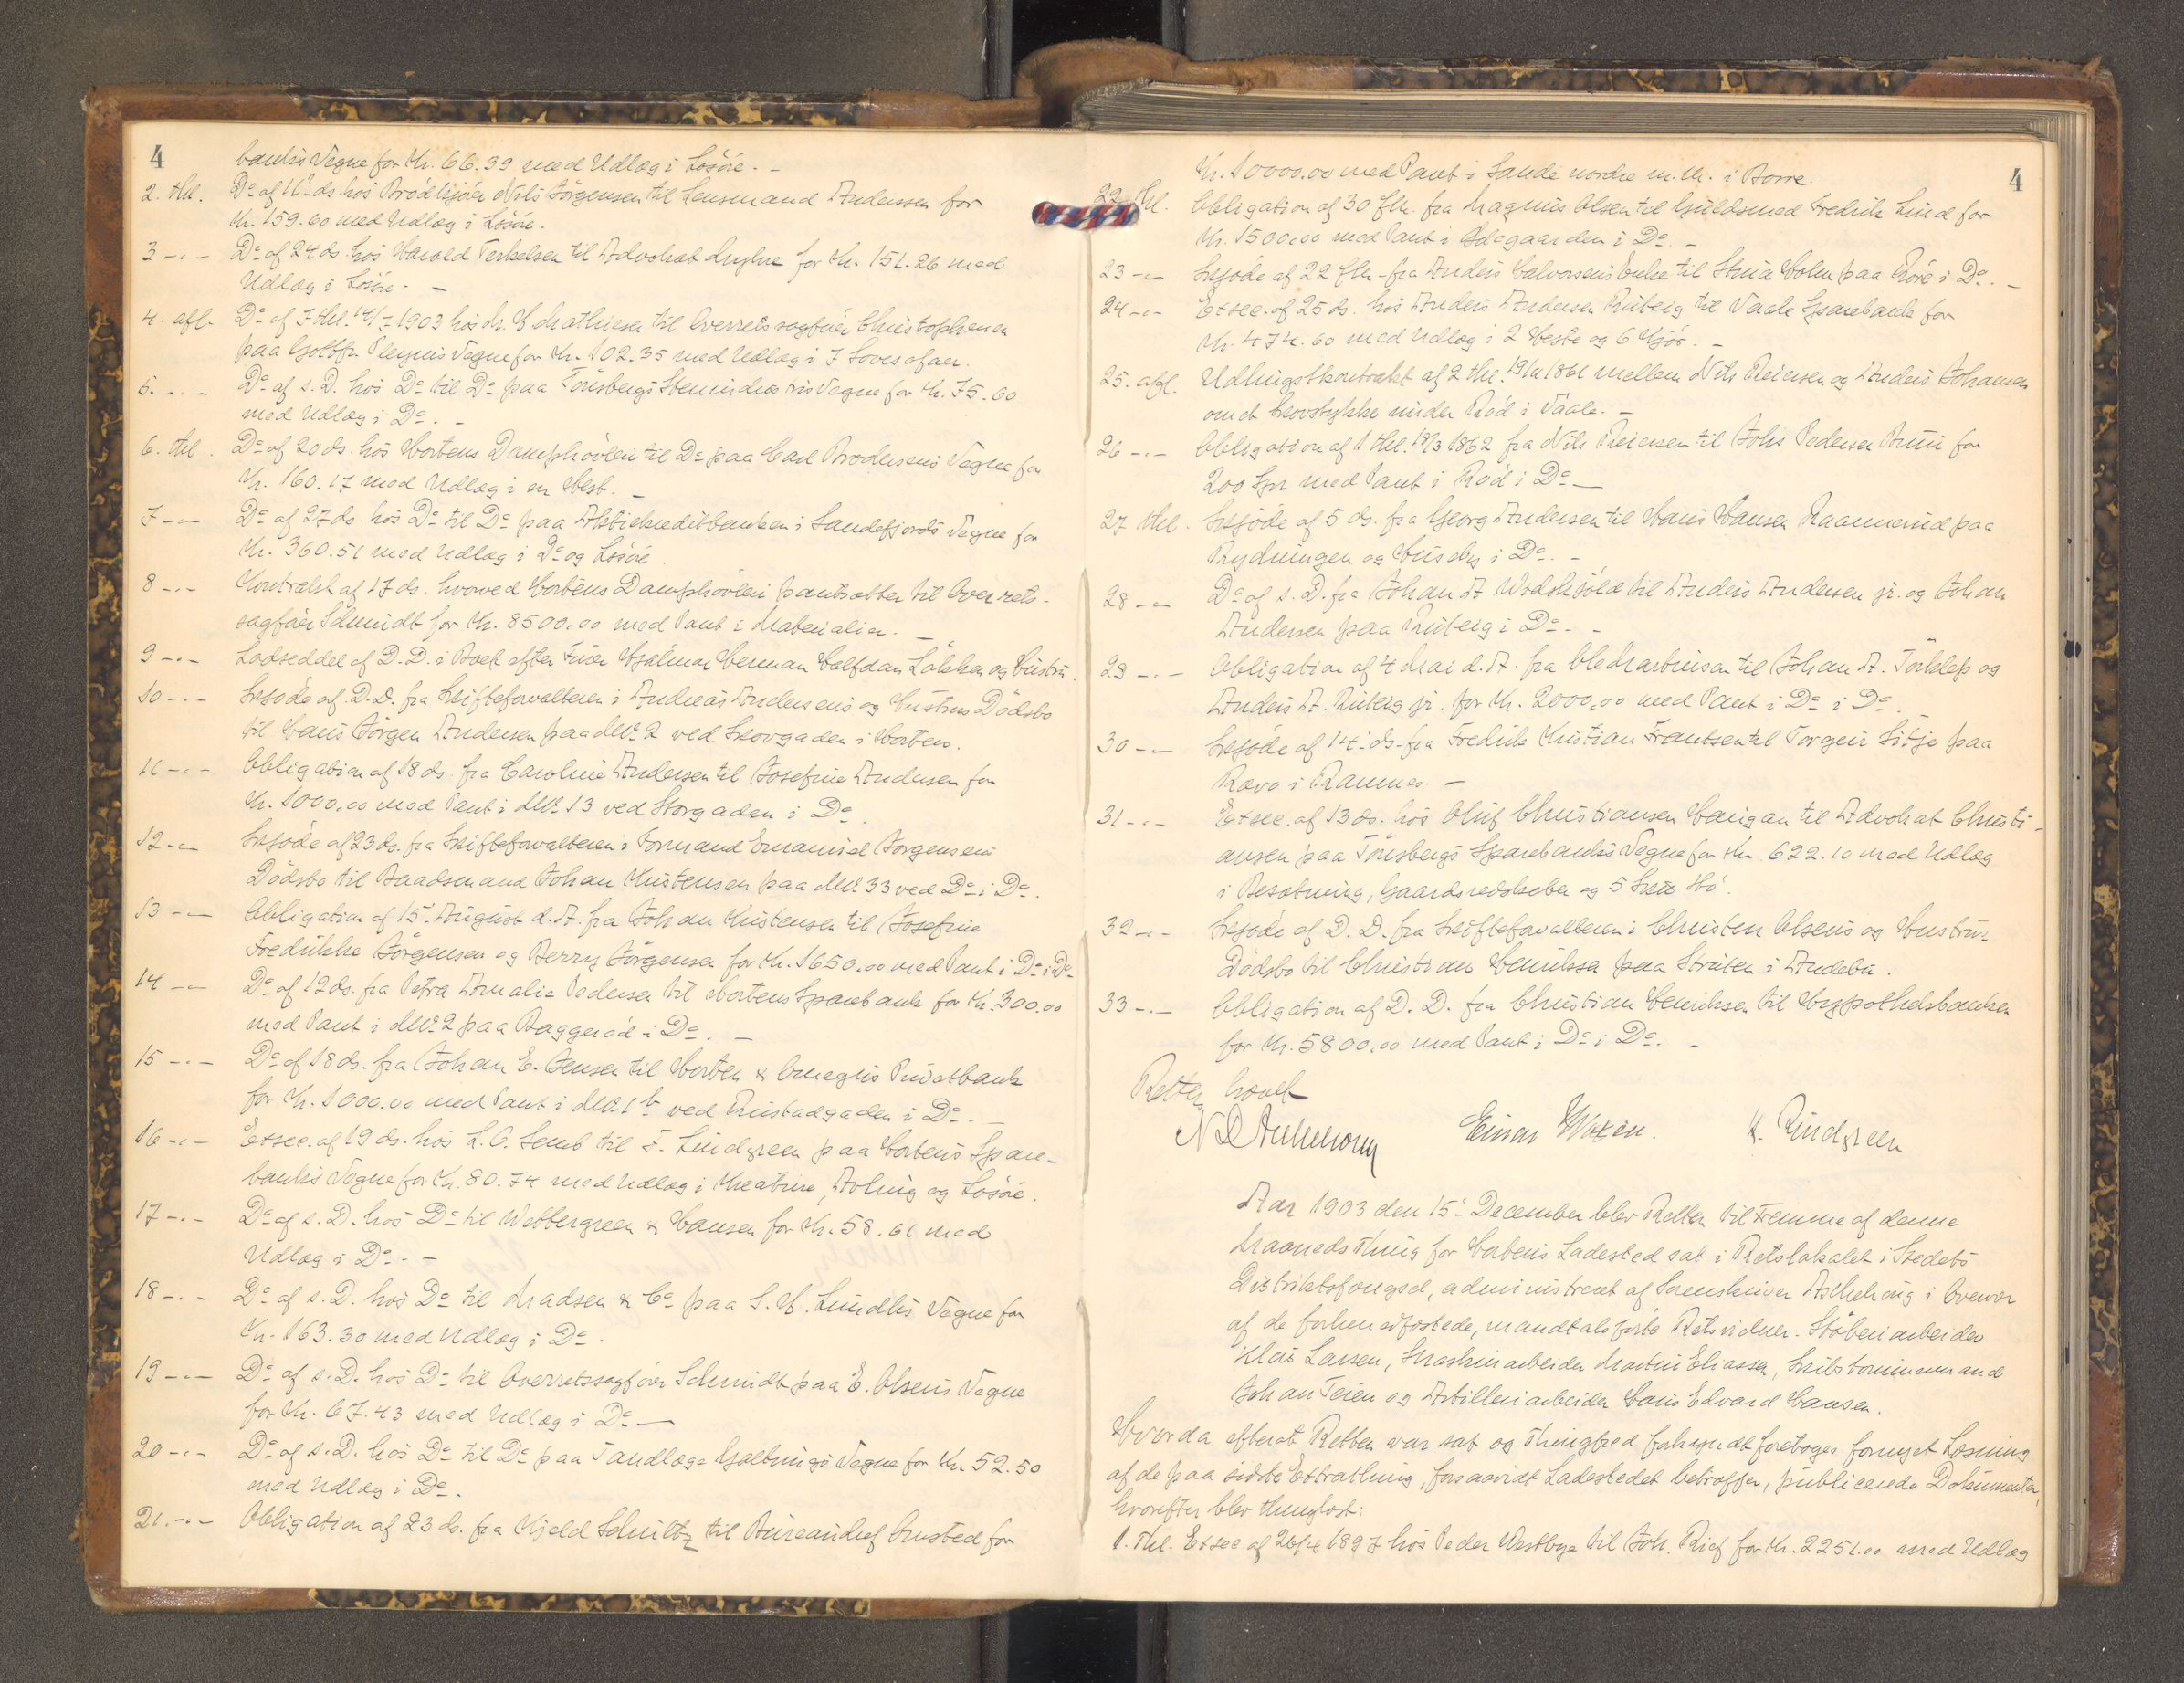 4
banks Vegne for Kr. 66.39 med Udlæg i Løsøre. -
2. thl. Do af 11 ds. hos Brødkjører Nils Jörgensen til Lensmand Anderssen for
Kr. 159.60 med Udlæg i Løsøre.
3 -"- Do af 24 ds. hos Harald Terkelsen til Advokat for Kr. 151.26 med
Udlæg i Løsøre. -
4. afl. Do af 7 thl. 14/7 1903 hos Mathiesen til Overretssagfører Christophersen
paa Gottfr. Vegne for Kr. 102.35 med Udlæg i 7
5. -"- Do af s. D. hos Do til Do paa Tönsbergs Vegne for Kr. 75.60
med Udlæg i Do. -
6. thl. Do af 20 ds. hos Hortens Damphövleri til Do paa Carl Brodersens Vegne for
Kr. 160.17 med Udlæg i en Hest. -
7 -"- Do af 27 ds. hos Do til Do paa Aktiekreditbanken i Sandefjords Vegne for
Kr. 360.51 med Udlæg i Do og Løsøre.
8 -"- Kontrakt af 17 ds. hvorved Hortens Damphövleri pantsætter til Overrets-
sagfører Schmidt for Kr. 8500.00 med Pant i Materialier. -
9 -"- Lodseddel af D. D. i Boet efter Hjalmar Herman Halfdan Løkken og Hustru.
10 -"- Skjöde af D. D. fra Skifteforvalteren i Andreas Andersens og Hustrus Dödsbo
til Hans Jörgen Andersen paa No. 2 ved Skovgaden i Horten.
11 -"- Obligation af 18 ds. fra Caroline Andersen til Josefine Andersen for
Kr. 1000.00 med Pant i No. 13 ved Storgaden i Do.
12 -"- Skjöde af 23 ds. fra Skifteforvalteren i Formand Emanuel Jörgensens
Dödsbo til Baadsmand Johan Kristensen paa No. 33 ved Do i Do.
13 -"- Obligation af 15. August d. A. fra Johan Kristensen til Josefine
Fredrikke Jörgensen og Berry Jörgensen for Kr. 1650.00 med Pant i Do i Do
14 -"- Do af 12 ds. fra Petra Amalie Pedersen til Hortens Sparebank for Kr. 300.00
med Pant i No. 2 paa Baggeröd i Do. -
15 -"- Do af 18 ds. fra Johan E. Jensen til Horten & Omegns Privatbank
for Kr. 1000.00 med Pant i No. 1 b ved Rustadgaden i Do. -
16 -"- Exsec. af 19 ds. hos L. O. Semb til F. Lindgreen paa Hortens Spare-
banks Vegne for Kr. 80.74 med Udlæg i Kreature, Avling og Løsøre.
17 -"- Do af s. D. hos Do til Wettergreen & Hansen for Kr. 58.61 med
Udlæg i Do. -
18 -"- Do af s. D. hos Do til Madsen & Co paa S. H. Lundhs Vegne for
Kr. 163.30 med Udlæg i Do.
19 -"- Do af s. D. hos Do til Overretssagfører Schmidt paa E. Olsens Vegne
for Kr. 67.43 med Udlæg i Do -
20 -"- Do af s. D. hos Do til Do paa Tandlæge Vegne for Kr. 52.50
med Udlæg i Do.
21. -"- Obligation af 23 ds. fra Kjeld Schultz til Bureauchef Onsted for
4
Kr. 10000.00 med Pant i Sande nordre m. m. i Borre.
22. thl. Obligation af 30 f.M. fra Magnus Olsen til Guldsmed Fredrik Lind for
Kr. 1500.00 med Pant i Adegaarden i Do. -
23 -"- Skjöde af 22 f.M. fra Anders Halvorsens Enke til Holm paa i Do. -
24 -"- Exsec. af 25 ds. hos Anders Andersen til Vaale Sparebank for
Kr. 474.60 med Udlæg i 2 Heste og 6 Kjör. -
25. afl. af 2 thl. 1861 mellem Nils Reiersen og Anders Johansen
om et Skovstykke under Röd i Vaale. -
26 -"- Obligation af 1 thl. 18/3 1862 fra Nils Reiersen til Johs Pedersen for
200 Spd med Pant i Röd i Do -
27 thl. Skjöde af 5 ds. fra Georg Andersen til Hans Hansen Raanerud paa
Rydningen og Huseby i Do. -
28 -"- Do af s. D. fra Johan A. Wodskjöld til Anders Andersen jr. og Johan
Andersen paa i Do. -
29 -"- Obligation af 4 Mai d. A. fra Ole Martinsen til Johan A. og
Anders A. jr. for Kr. 2000.00 med Pant i Do i Do.
30 -"- Skjöde af 14. ds. fra Fredrik Kristian Frantsen til Torgeir Sitje paa
Rævo i Ramnes. -
31 -"- Exsec. af 13 ds. hos Oluf Christiansen til Advokat Christi-
ansen paa Tönsbergs Sparebanks Vegne for Kr. 622.10 med Udlæg
i Besætning, Gaardsredskaber og 5 Hö.
32 -"- Skjöde af D. D. fra Skifteforvalteren i Christen Olsens og Hustrus
Dödsbo til Christian Henriksen paa Struten i Andebu.
33 -"- Obligation af D. D. fra Christian Henriksen til Hypothekbanken
for Kr. 5800.00 med Pant i Do i Do. -
Retten hævet
Einar K. Lindgreen
Aar 1903 den 15. December blev Retten til Fremme af denne
Maaneds Thing for Hortens Ladested sat i Retslokalet i Stedets
Distriktsfængsel, administreret af Sorenskriver Aschehoug i Overvær
af de forhen edfæstede, mandtalsførte Retsvidner: Stöberiarbeider
Klaus Larsen, Maskinarbeider Martin Eliassen, Skibstømmermand
Johan Teien og Artilleriarbeider Hans Edvard Hansen.
Hvorda efterat Retten var sat og Thingfred forkyndt foretoges fornyet Læsning
af de paa sidste Extrathing, forsaavidt Ladestedet betræffer, publicerede Dokumenter,
hvorefter blev thinglæst:
1. thl. Exsec. af 1897 hos Peder Westbye til Joh. for Kr. 2251.00 med Udlæg